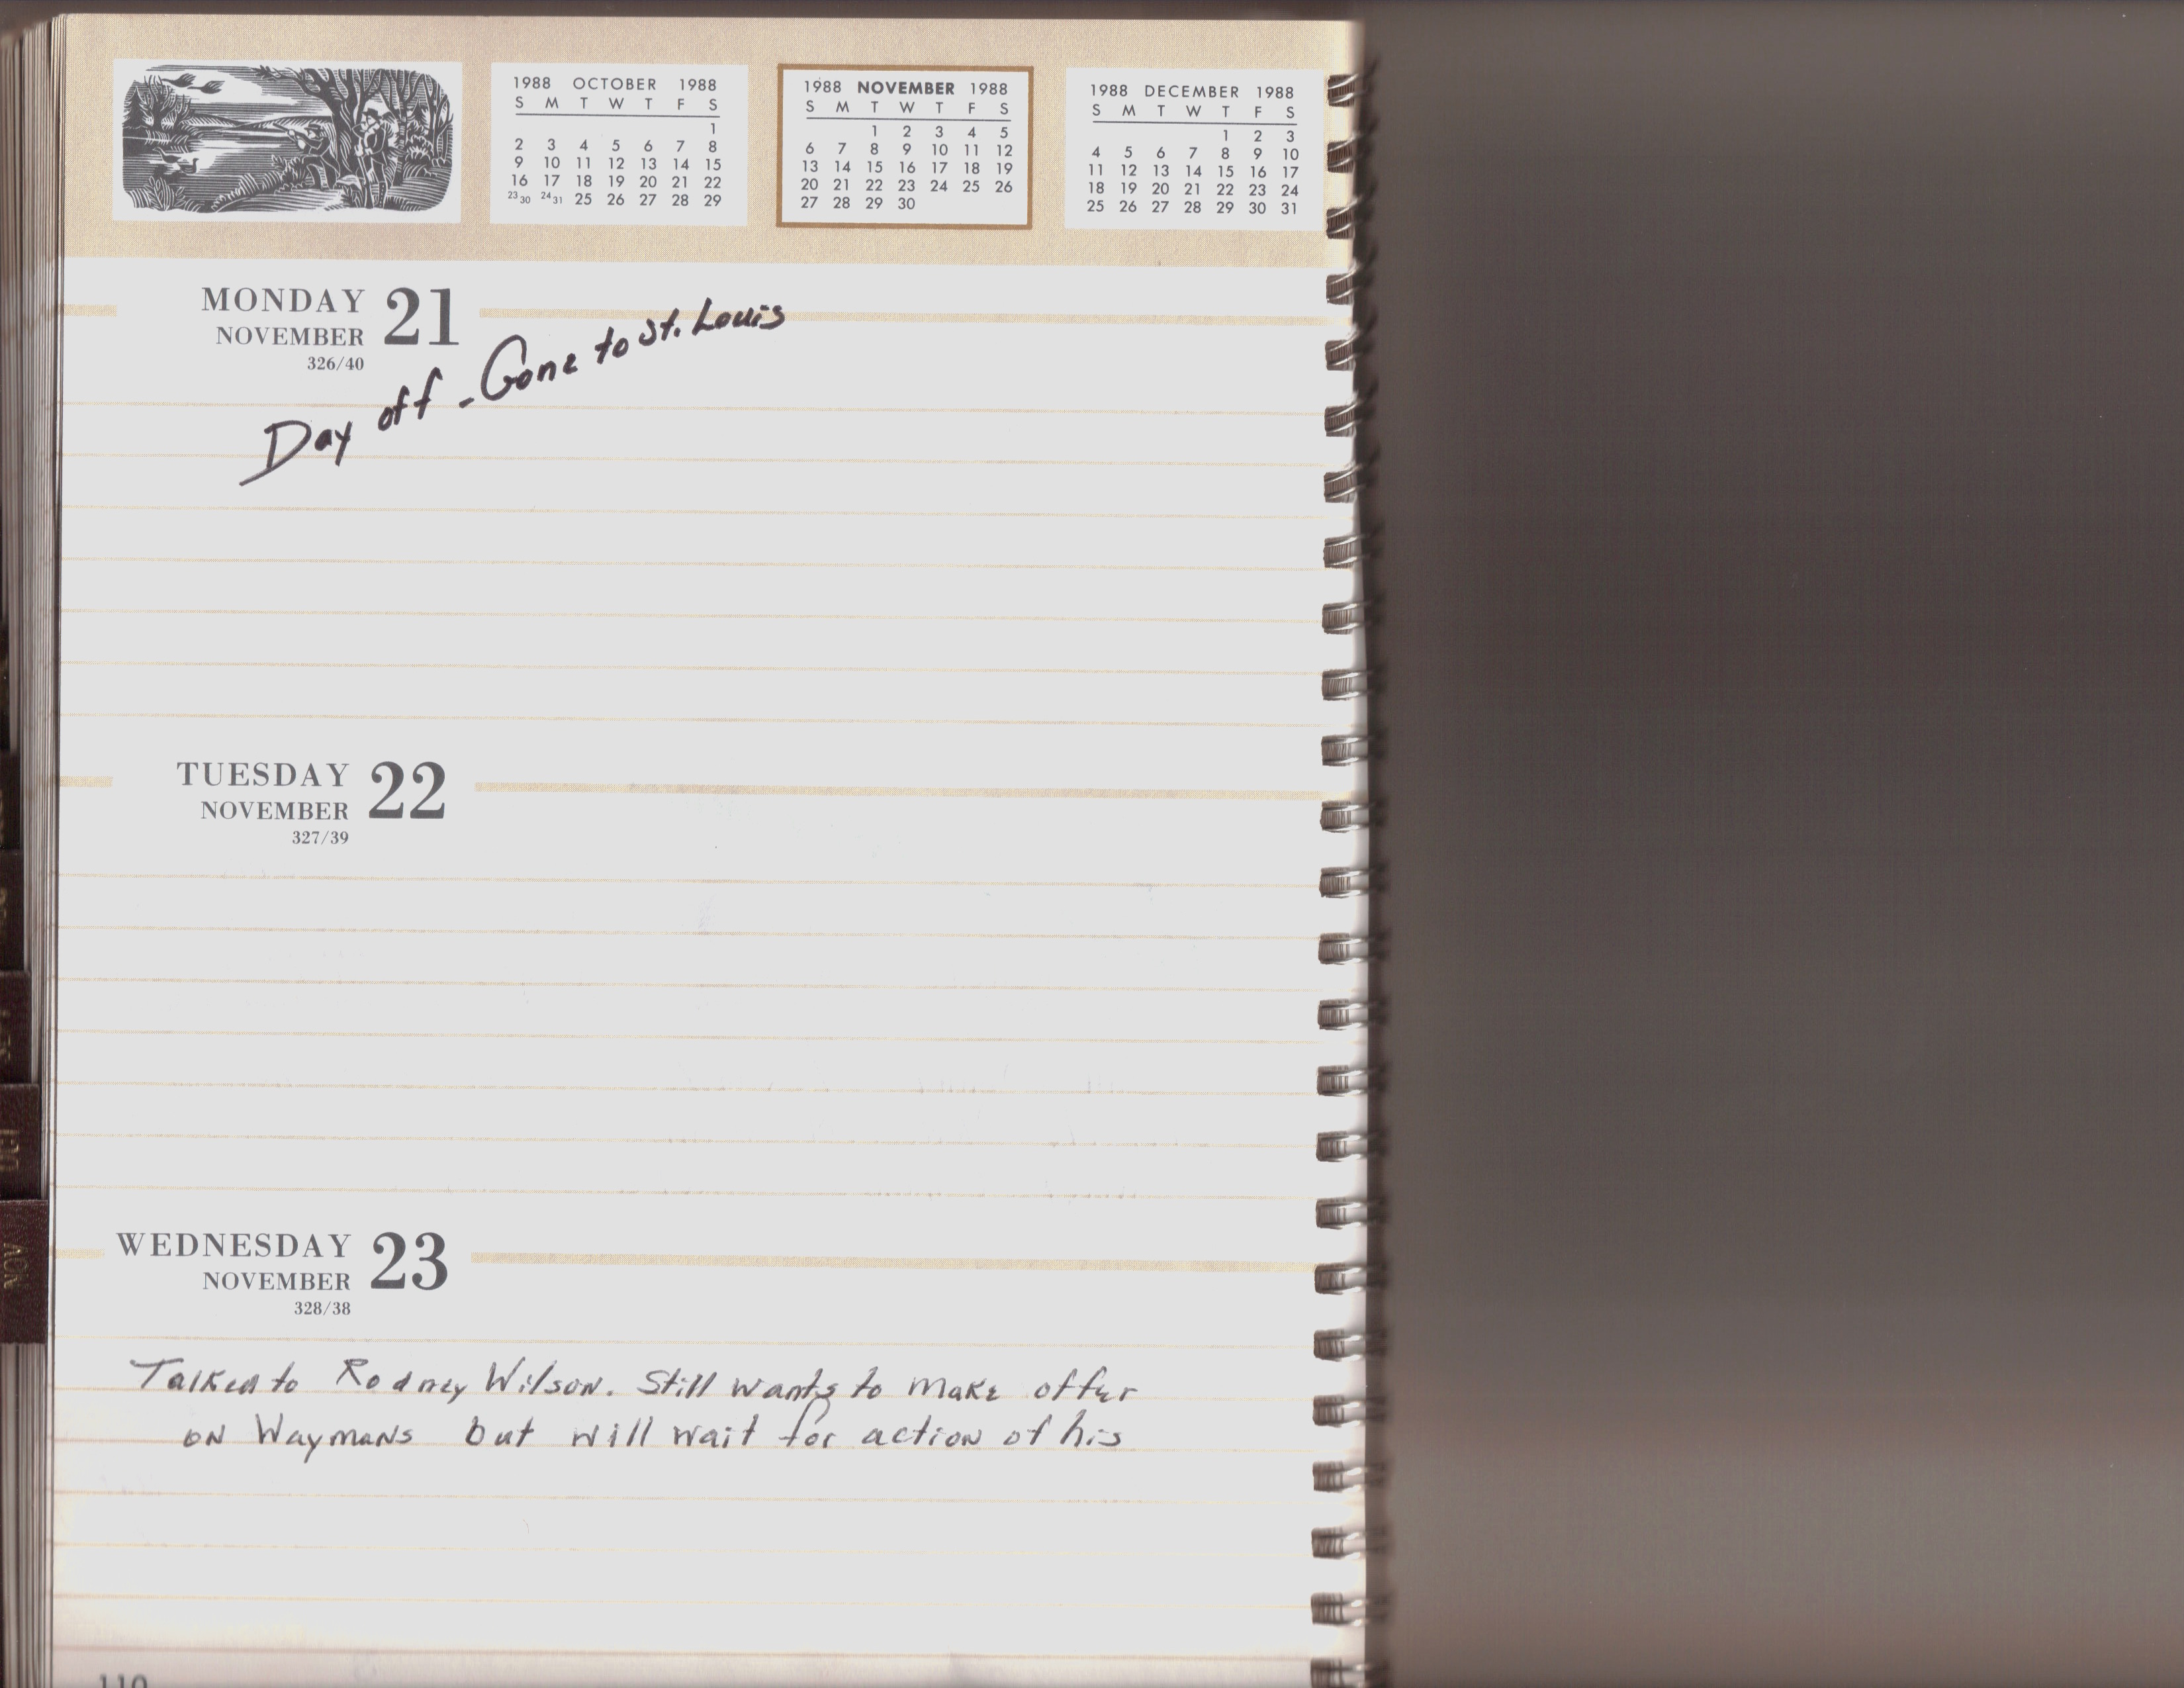 1988 OCTOBER 1988
S M T W T F S
1
2 3 4 5 6 7 8
9 10 11 12 13 14 15
16 17 18 19 20 21 22
23 30 24 31 25 26 27 28 29
1988 NOVEMBER 1988
S M T W T F S
1 2 3 4 5
6 7 8 9 10 11 12
13 14 15 16 17 18 19
20 21 22 23 24 25 26
27 28 29 30
1988 DECEMBER 1988
S M T W T F S
1 2 3
4 5 6 7 8 9 10
11 12 13 14 15 16 17
18 19 20 21 22 23 24
25 26 27 28 29 30 31
MONDAY 21
NOVEMBER
326/40
Day off - Gone to St. Louis
TUESDAY 22
NOVEMBER
327/39
WEDNESDAY 23
NOVEMBER
328/38
Talked to Rodney Wilson. Still wants to make offer
on Waymans but will wait for action of his
110
OCT
NOV